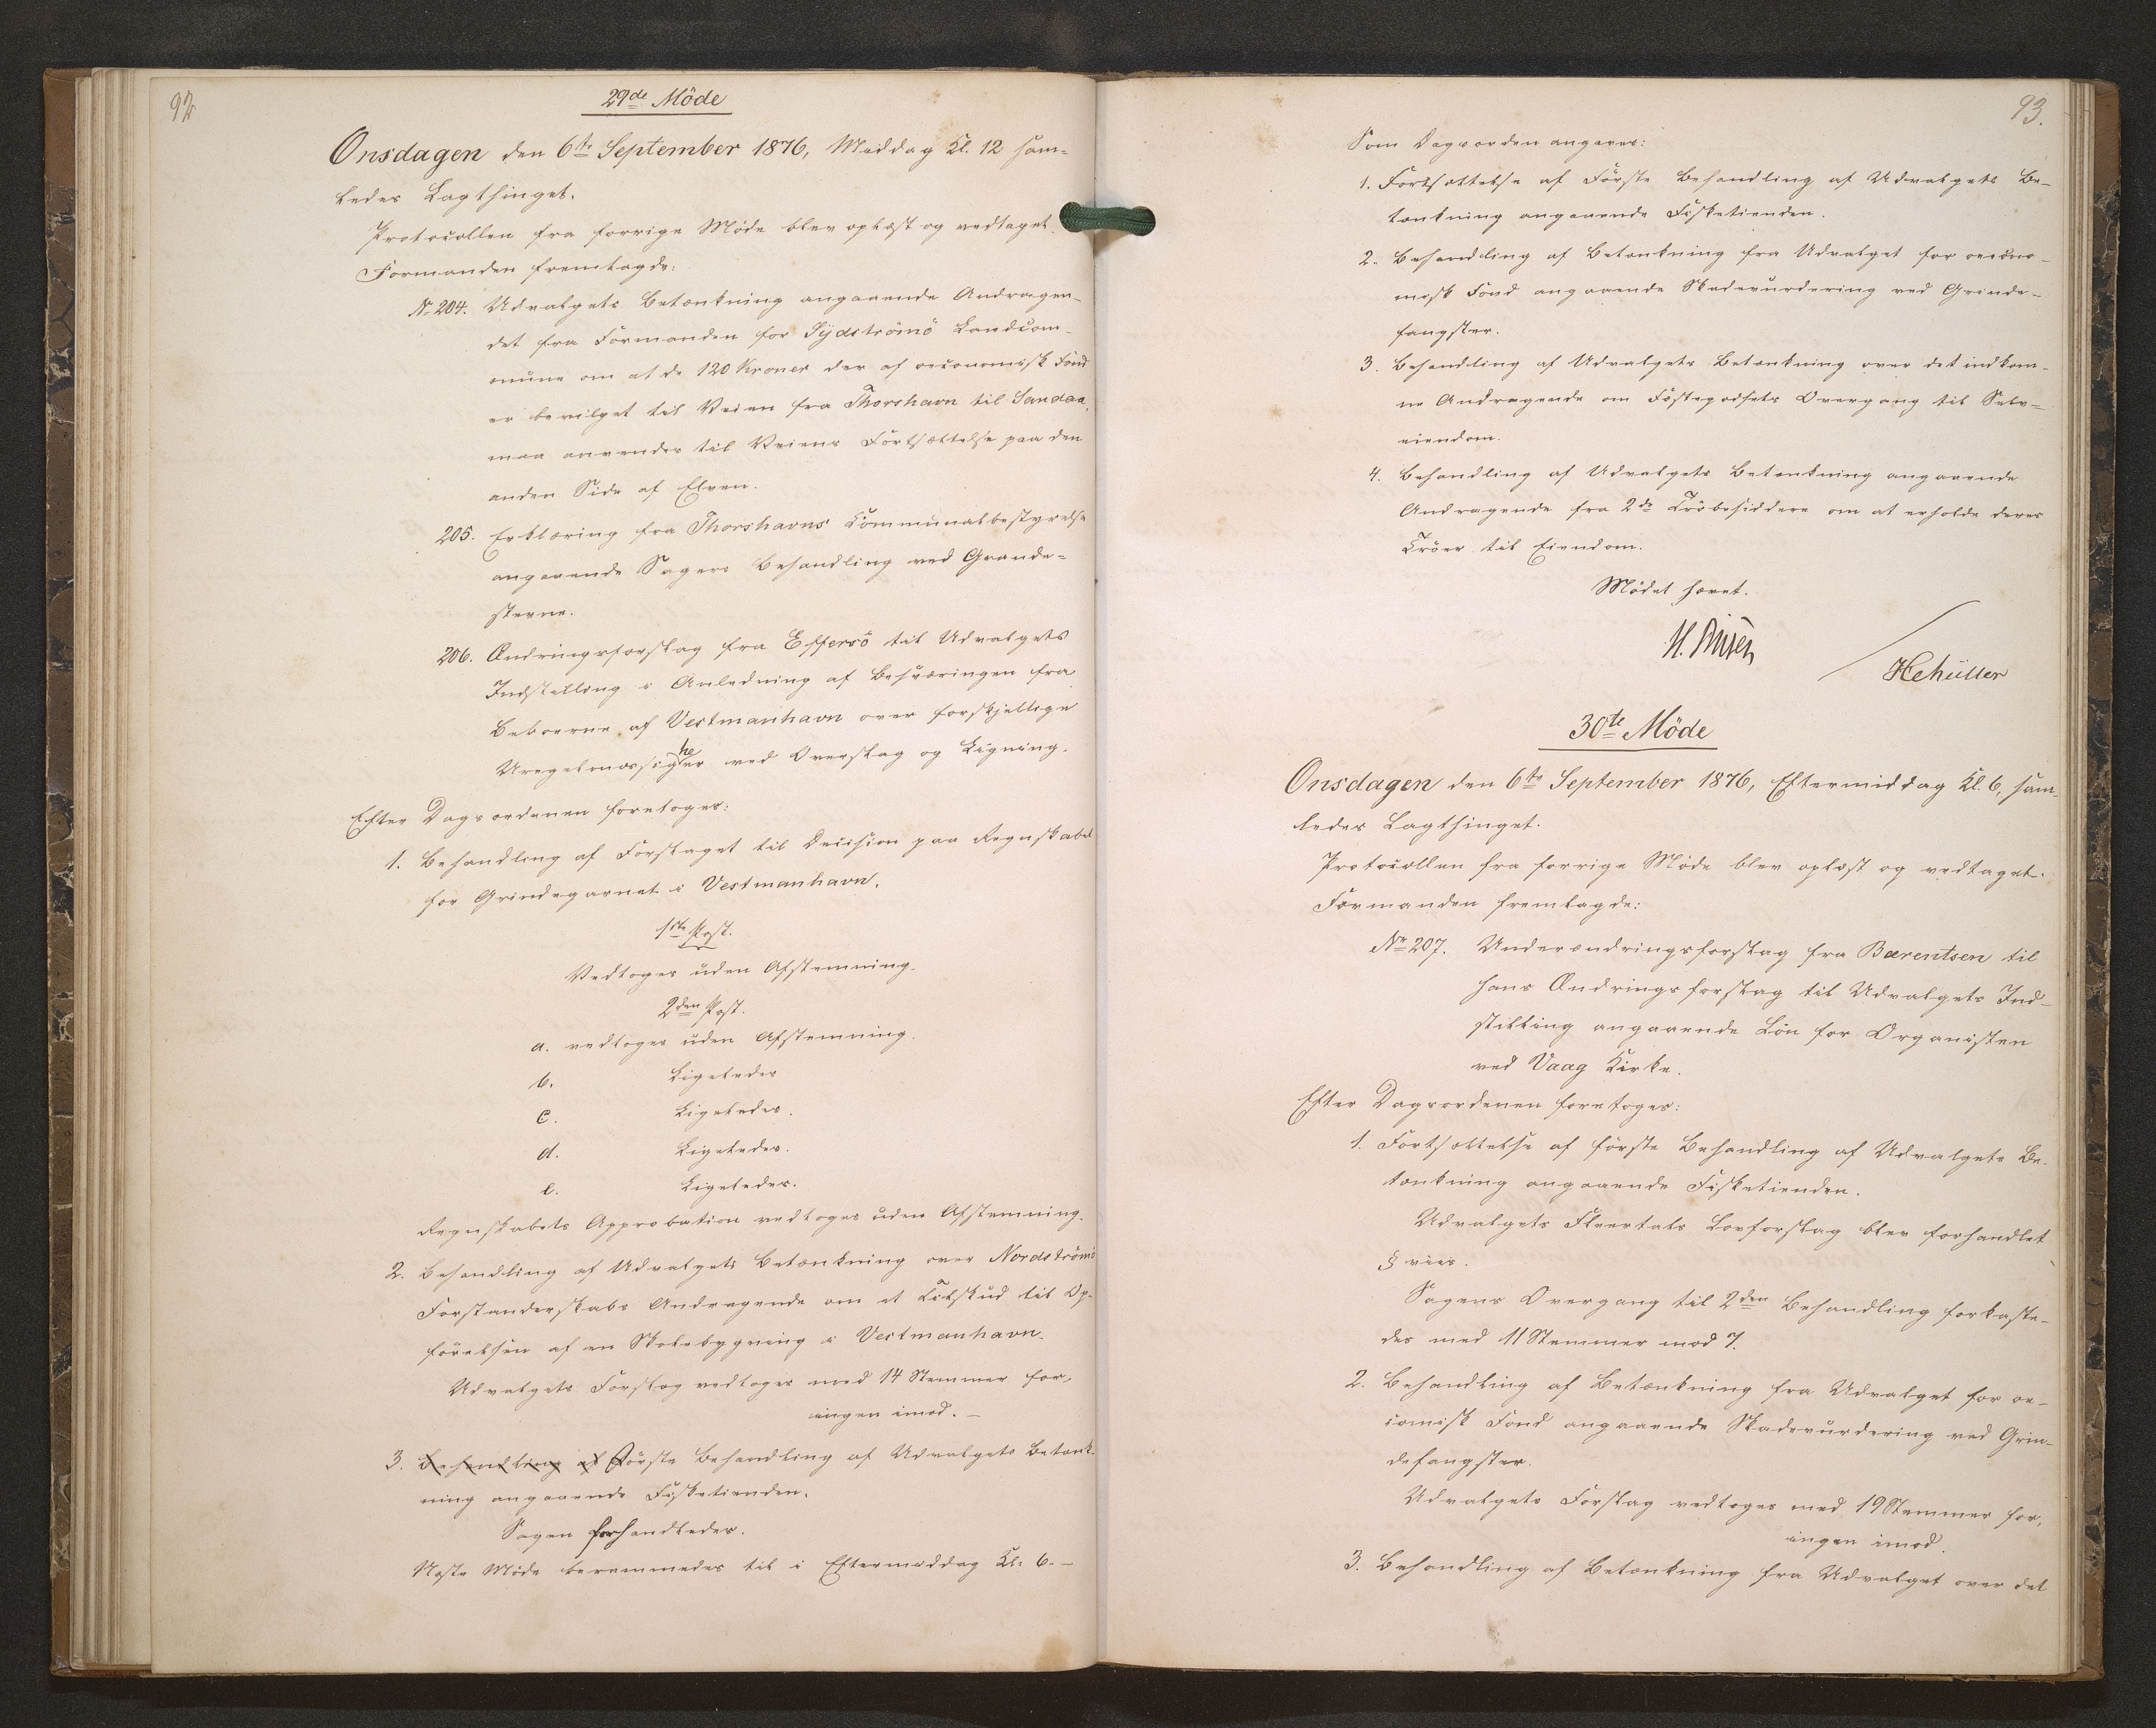 92
29de Møde
Onsdagen den 6te September 1876, Middag Kl. 12 sam-
ledes Lagthinget.
Protocollen fra forrige Møde blev oplæst og vedtaget.
Formanden fremlagde:
No 204. Udvalgets Betænkning angaaende Andragen-
det fra Formanden for Sydströmö Landcom-
mune om at de 120 Kroner der af oeconomisk Fond
er bevilget til Veien fra Thorshavn til Sandaa,
maa anvendes til Veiens Fortsættelse paa den
anden Side af Elven.
205. Erklæring fra Thorshavns Communalbestyrelse
angaaende Sagers Behandling ved Grande-
stevne.
206. Ændringsforslag fra Effersö til Udvalgets
Indstilling i Anledning af Besværingen fra
Beboerne af Vestmanhavn over forskjellige
Uregelmæssigheder ved Overslag og Ligning.
Efter Dagsordenen foretoges:
1. Behandling af Forslaget til Decision paa Regnskabet
for Grindegarnet i Vestmanhavn.
1ste Post.
Vedtoges uden Afstemning.
2den Post.
a. vedtoges uden Afstemning.
b. Ligeledes
c. Ligeledes.
d. Ligeledes.
e. Ligeledes.
Regnskabets Approbation vedtoges uden Afstemning.
2. Behandling af Udvalgets Betænkning over Nordströmö
Forstanderskabs Andragende om et Tilskud til Op-
førelsen af en Skolebygning i Vestmanhavn.
Udvalgets Forslag vedtoges med 14 Stemmer for,
ingen imod. –
3. Behandling af Første Behandling af Udvalgets Betænk-
ning angaaende Fisketienden.
Sagen forhandledes.
Næste Møde berammedes til i Eftermiddag Kl. 6. –
93.
Som Dagsorden angaves:
1. Fortsættelse af Første Behandling af Udvalgets Be-
tænkning angaaende Fisketienden.
2. Behandling af Betænkning fra Udvalget for oecono-
misk Fond angaaende Skadevurdering ved Grinde-
fangster.
3. Behandling af Udvalgets Betænkning over det indkom-
ne Andragende om Fæstegodsets Overgang til Selv-
eiendom.
4. Behandling af Udvalgets Betænkning angaaende
Andragende fra 2de Tröbesiddere om at erholde deres
Tröer til Eiendom.
Mødet hævet.
H. Müller
30te Møde
Onsdagen den 6te September 1876, Eftermiddag Kl. 6, sam-
ledes Lagthinget.
Protocollen fra forrige Møde blev oplæst og vedtaget.
Formanden fremlagde:
No 207. Underændringsforslag fra Bærentsen til
hans Ændringsforslag til Udvalgets Ind-
stilling angaaende Løn for Organisten
ved Vaag Kirke.
Efter Dagsordenen foretoges:
1. Fortsættelse af første Behandling af Udvalgets Be-
tænkning angaaende Fisketienden.
Udvalgets Fleertals Lovforslag blev forhandlet
§ viis.
Sagens Overgang til 2den Behandling forkaste-
des med 11 Stemmer mod 7.
2. Behandling af Betænkning fra Udvalget for oe-
comisk Fond angaaende Skadevurdering ved Grin-
defangster.
Udvalgets Forslag vedtoges med 19 Stemmer for,
ingen imod.
3. Behandling af Betænkning fra Udvalget over det